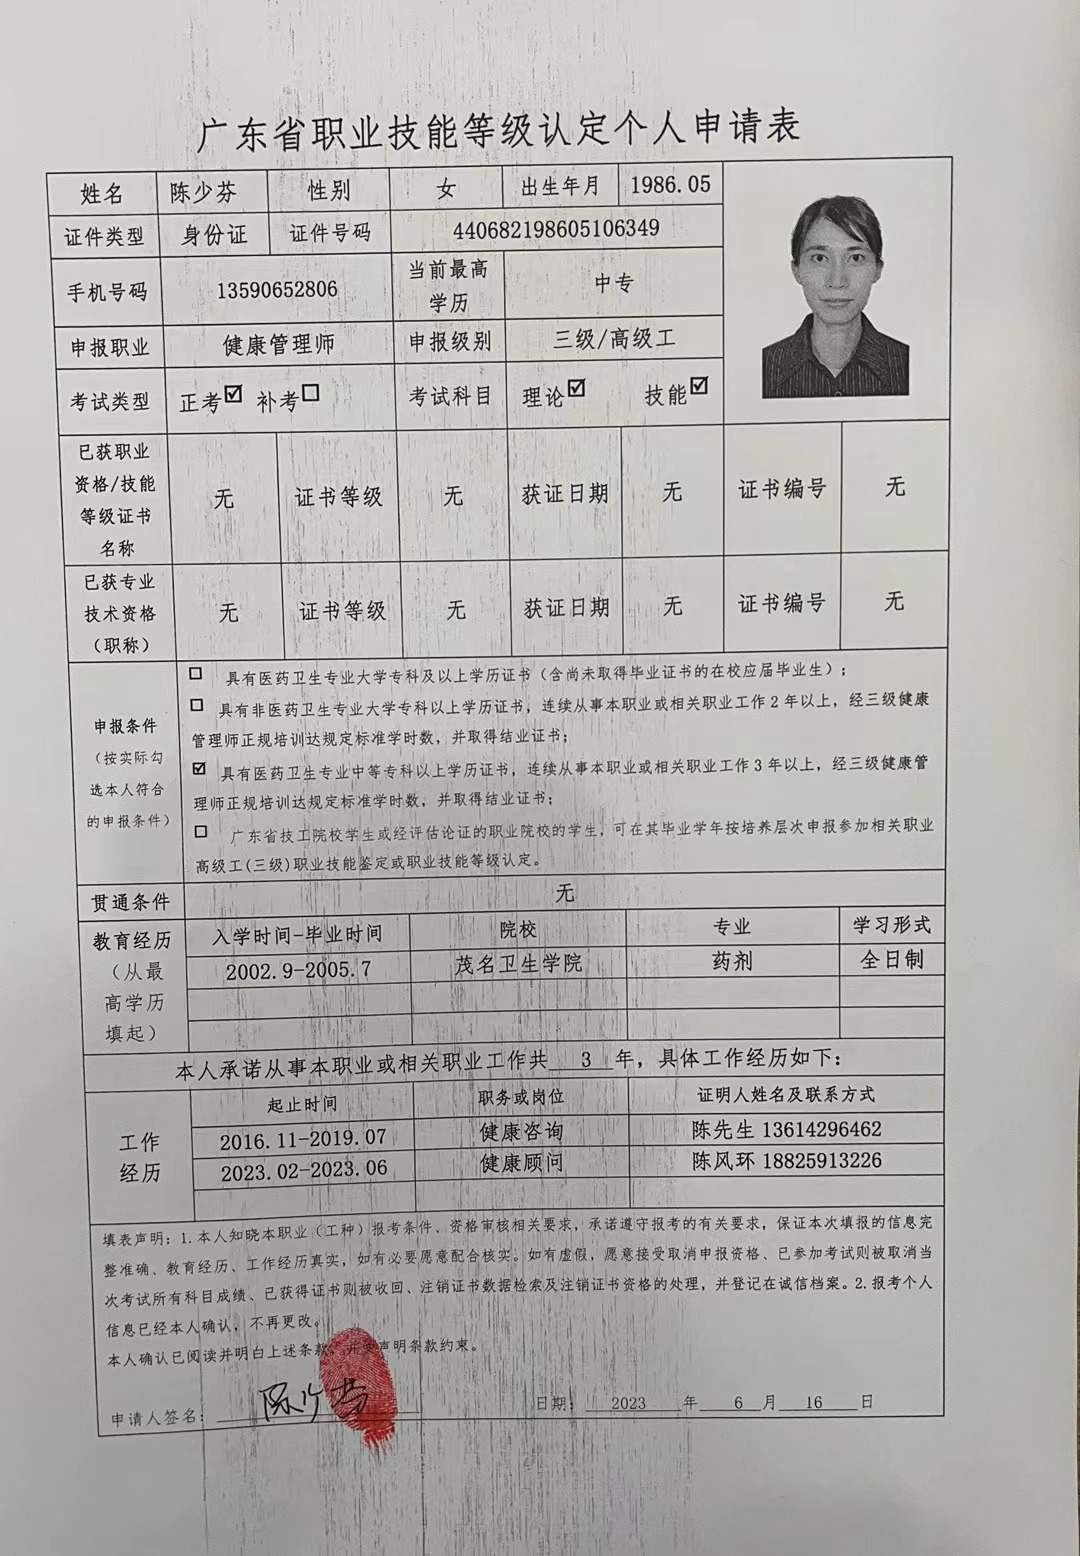 广东省职业技能等级认定个人申请表
姓名 陈少芬 性别 女 出生年月 1986.05
证件类型 身份证 证件号码 440682198605106349
手机号码 13590652806 当前最高学历 中专
申报职业 健康管理师 申报级别 三级/高级工
考试类型 正考☑ 补考☐ 考试科目 理论☑ 技能☑
已获职业
资格/技能
等级证书
名称
无 证书等级 无 获证日期 无 证书编号 无
已获专业
技术资格
（职称）
无 证书等级 无 获证日期 无 证书编号 无
申报条件
（按实际勾
选本人符合
的申报条件）
☐ 具有医药卫生专业大学专科及以上学历证书（含尚未取得毕业证书的在校应届毕业生）；
☐ 具有非医药卫生专业大学专科以上学历证书，连续从事本职业或相关职业工作2年以上，经三级健康
管理师正规培训达规定标准学时数，并取得结业证书；
☑ 具有医药卫生专业中等专科以上学历证书，连续从事本职业或相关职业工作3年以上，经三级健康管
理师正规培训达规定标准学时数，并取得结业证书；
☐ 广东省技工院校学生或经评估论证的职业院校的学生，可在其毕业学年按培养层次申报参加相关职业
高级工(三级)职业技能鉴定或职业技能等级认定。
贯通条件 无
教育经历
（从最
高学历
填起）
入学时间-毕业时间 院校 专业 学习形式
2002.9-2005.7 茂名卫生学院 药剂 全日制
本人承诺从事本职业或相关职业工作共 3 年，具体工作经历如下：
工作
经历
起止时间 职务或岗位 证明人姓名及联系方式
2016.11-2019.07 健康咨询 陈先生 13614296462
2023.02-2023.06 健康顾问 陈风环 18825913226
填表声明：1.本人知晓本职业（工种）报考条件、资格审核相关要求，承诺遵守报考的有关要求，保证本次填报的信息完
整准确、教育经历、工作经历真实，如有必要愿意配合核实。如有虚假，愿意接受取消申报资格、已参加考试则被取消当
次考试所有科目成绩、已获得证书则被收回、注销证书数据检索及注销证书资格的处理，并登记在诚信档案。2.报考个人
信息已经本人确认，不再更改。
本人确认已阅读并明白上述条款，并受声明条款约束。
申请人签名： 陈少芬 日期： 2023 年 6 月 16 日